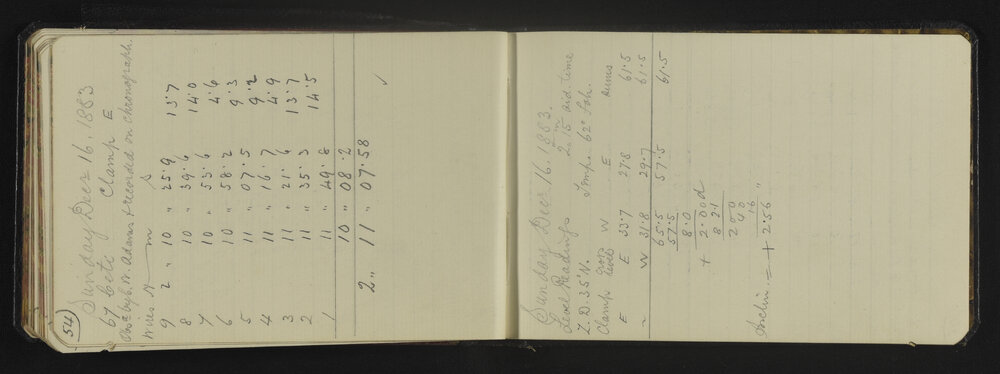 54
Sunday Decr 16. 1883
67 Ceti Clamp E
Obsd by C. W. Adams & recorded on chronograph.
Wires h m s
9 2 " 10 " 25.9 13.7
8 10 " 39.6 14.0
7 10 " 53.6 4.6
6 10 " 58.2 9.3
5 11 " 07.5 9.2
4 11 " 16.7 4.9
3 11 " 21.6 13.7
2 11 " 35.3 14.5
1 11 " 49.8
10 " 08.2
2 " 11 " 07.58
✓
Sunday Decr 16. 1883.
Level Readings 2h 15m sid. time
Z.D. 35° N. Temp. 62° Fah.
Clamp Level W E Sums
E E 33.7 27.8 61.5
" W 31.8 29.7 61.5
65.5 57.5 61.5
57.5
8.0
+ 2.00 d
821
200
40
16
Inclin. = + 2.56 "